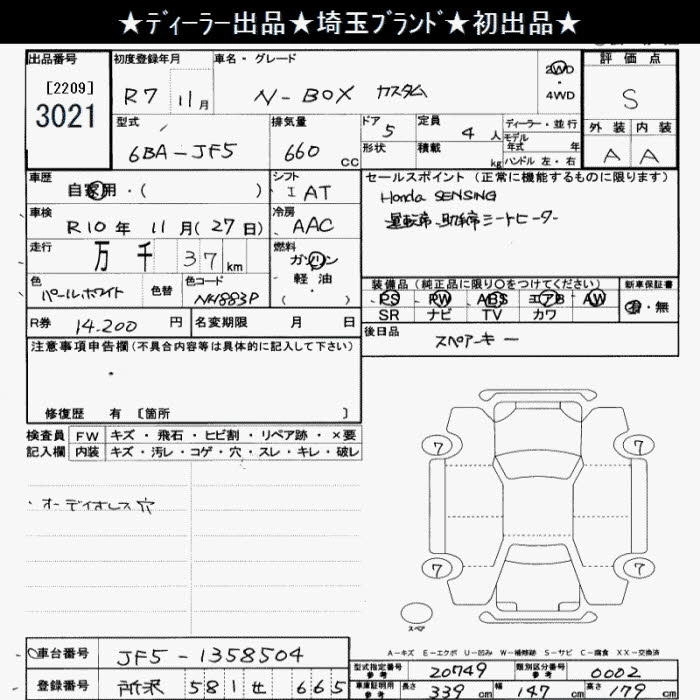 ★ディーラー出品★埼玉ブランド★初出品★
出品番号 初度登録年月 車名・グレード 評価点
[2209]
3021
R7 11月 N-BOX カスタム 2WD・4WD S
型式 排気量 ドア 定員 ディーラー・並行 外装 内装
6BA-JF5 660 CC 5 4人 モデル年式 年 A A
形状 積載 kg ハンドル 左・右
車歴 シフト セールスポイント (正常に機能するものに限ります)
自家用・( ) I AT Honda SENSING
車検 冷房 運転席・助手席シートヒーター
R10年 11月(27日) AAC
走行 燃料
万 千 37 km ガソリン・軽油 ( )
装備品(純正品に限り〇をつけてください) 新車保証書
PS PW ABS エアB AW 有・無
SR ナビ TV カワ
色 色替 色コード
パールホワイト NH883P
R券 14.200 円 名変期限 月 日
後日品 スペアーキー
注意事項申告欄(不具合内容等は具体的に記入して下さい)
修復歴 有 [箇所 ]
検査員 FW キズ・飛石・ヒビ割・リペア跡・×要
記入欄 内装 キズ・汚レ・コゲ・穴・スレ・キレ・破レ
オーディオレス穴
7 7
7 7
スペア
A-キズ E-エクボ U-凹み W-補修跡 S-サビ C-腐食 XX-交換済
車台番号 JF5-1358504
型式指定番号 参考 20749 類別区分番号 参考 0002
登録番号 所沢 581 せ 665
車庫証明用 参考 長さ 339 cm 幅 147 cm 高さ 179 cm